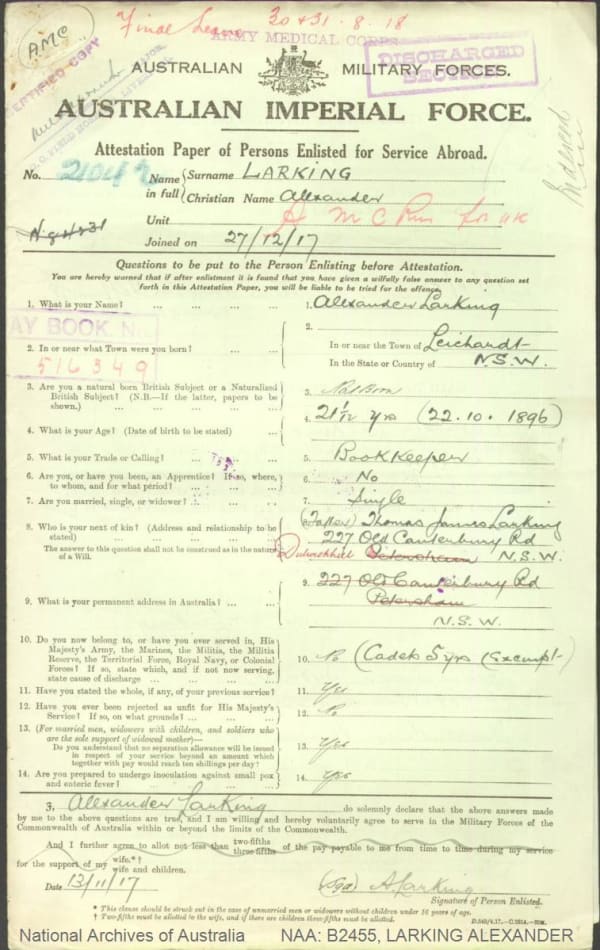 Final Leave 30 & 31 . 8 . 18
AMC
ARMY MEDICAL CORPS
CERTIFIED COPY
DISCHARGED
AUSTRALIAN MILITARY FORCES.
AUSTRALIAN IMPERIAL FORCE.
Attestation Paper of Persons Enlisted for Service Abroad.
No. Name in full Surname LARKING
Christian Name Alexander
Unit A M C Rein
Joined on 27/12/17
Questions to be put to the Person Enlisting before Attestation.
You are hereby warned that if after enlistment it is found that you have given a wilfully false answer to any question set
forth in this Attestation Paper, you will be liable to be tried for the offence.
1. What is your Name? ... ... ... ... 1. Alexander Larking
PAY BOOK No.
516349
2. In or near what Town were you born? ... ... 2. In or near the Town of Leichardt
In the State or Country of N.S.W.
3. Are you a natural born British Subject or a Naturalized
British Subject? (N.B.—If the latter, papers to be
shown.) ... ... ... ... ... 3. Nat Born
4. What is your Age? (Date of birth to be stated) ... 4. 21 1/12 yrs (22.10.1896)
5. What is your Trade or Calling? ... ... ... 5. Book Keeper
6. Are you, or have you been, an Apprentice? If so, where,
to whom, and for what period? ... ... ... 6. No
7. Are you married, single, or widower? ... ... 7. Single
8. Who is your next of kin? (Address and relationship to be
stated)
The answer to this question shall not be construed as in the nature
of a Will.
8. (Father) Thomas James Larking
227 Old Canterbury Rd
Dulwichhill Petersham N.S.W.
9. What is your permanent address in Australia? ... ... 9. 227 Old Canterbury Rd
Petersham
N.S.W.
10. Do you now belong to, or have you ever served in, His
Majesty's Army, the Marines, the Militia, the Militia
Reserve, the Territorial Force, Royal Navy, or Colonial
Forces? If so, state which, and if not now serving,
state cause of discharge ... ... ... ... 10. No (Cadets 5 yrs (Exempt
11. Have you stated the whole, if any, of your previous service? 11. Yes
12. Have you ever been rejected as unfit for His Majesty's
Service? If so, on what grounds? ... ... ... 12. No
13. (For married men, widowers with children, and soldiers who
are the sole support of widowed mother)—
Do you understand that no separation allowance will be issued
in respect of your service beyond an amount which
together with pay would reach ten shillings per day? 13. Yes
14. Are you prepared to undergo inoculation against small pox
and enteric fever? ... ... ... ... ... 14. Yes
I, Alexander Larking do solemnly declare that the above answers made
by me to the above questions are true, and I am willing and hereby voluntarily agree to serve in the Military Forces of the
Commonwealth of Australia within or beyond the limits of the Commonwealth.
And I further agree to allot not less than two-fifths three-fifths of the pay payable to me from time to time during my service
for the support of my wife.*† wife and children.
Date 13/11/17 (Sgd) A. Larking
Signature of Person Enlisted.
* This clause should be struck out in the case of unmarried men or widowers without children under 16 years of age.
† Two-fifths must be allotted to the wife, and if there are children three-fifths must be allotted.
National Archives of Australia NAA: B2455, LARKING ALEXANDER